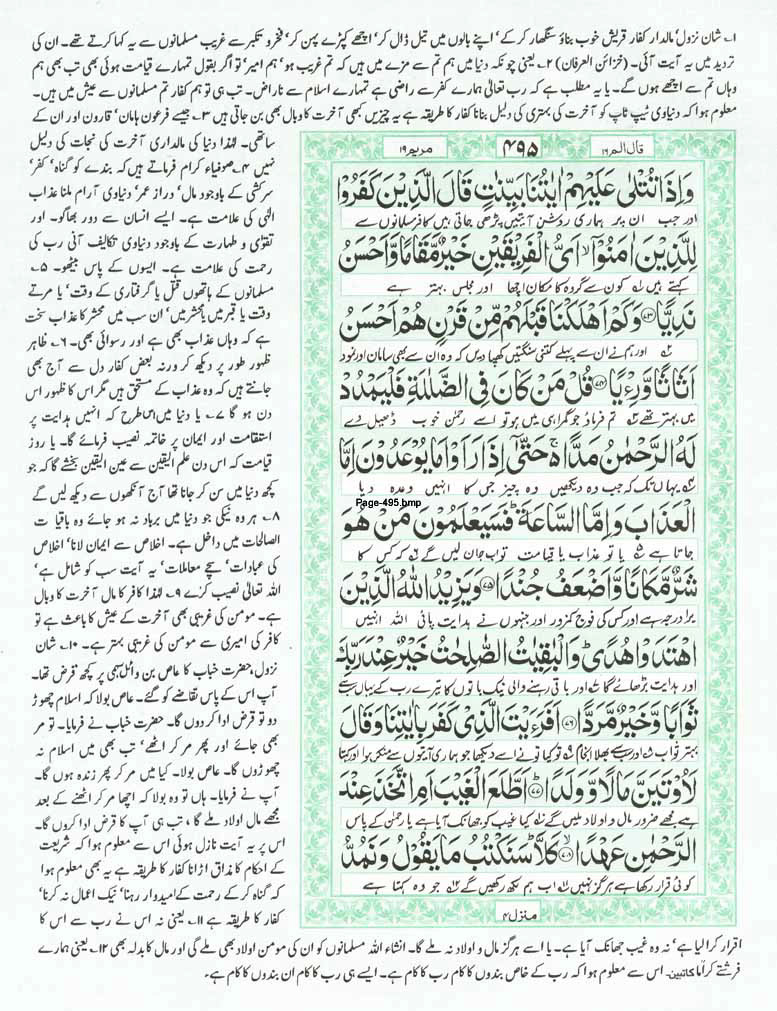 ۱؎ شان نزول‘ مالدار کفار قریش خوب بناؤ سنگھار کر کے‘ اپنے بالوں میں تیل ڈال کر‘ اچھے کپڑے پہن کر‘ فخرو تکبر سے غریب مسلمانوں سے یہ کہا کرتے تھے۔ ان کی
تردید میں یہ آیت آئی۔ (خزائن العرفان) ۲؎ یعنی چونکہ دنیا میں ہم تم سے مزے میں ہیں کہ تم غریب ہو‘ ہم امیر‘ تو اگر بقول تمہارے قیامت ہوئی بھی تب بھی ہم
وہاں تم سے اچھے ہوں گے۔ یا یہ مطلب ہے کہ رب تعالیٰ ہمارے کفر سے راضی ہے تمہارے اسلام سے ناراض۔ تب ہی تو ہم کفار تم مسلمانوں سے عیش میں ہیں۔
معلوم ہوا کہ دنیاوی ٹیپ ٹاپ کو آخرت کی بہتری کی دلیل بنانا کفار کا طریقہ ہے یہ چیزیں کبھی آخرت کا وبال بھی بن جاتی ہیں ۳؎ جیسے فرعون ہامان‘ قارون اور ان کے
ساتھی۔ لہٰذا دنیا کی مالداری آخرت کی نجات کی دلیل
نہیں ۴؎ صوفیاء کرام فرماتے ہیں کہ بندے کو گناہ‘ کفر‘
سرکشی کے باوجود مال‘ دراز عمر‘ دنیاوی آرام ملنا عذاب
الٰہی کی علامت ہے۔ ایسے انسان سے دور بھاگو۔ اور
تقویٰ و طہارت کے باوجود دنیاوی تکالیف آنی رب کی
رحمت کی علامت ہے۔ ایسوں کے پاس بیٹھو۔ ۵؎
مسلمانوں کے ہاتھوں قتل یا گرفتاری کے وقت‘ یا مرتے
وقت یا قبر میں یا محشر میں‘ ان سب میں محشر کا عذاب سخت
ہے کہ وہاں عذاب بھی ہے اور رسوائی بھی۔ ۶؎ ظاہر
ظہور طور پر دیکھ کر ورنہ بعض کفار دل سے آج بھی
جانتے ہیں کہ وہ عذاب کے مستحق ہیں مگر اس کا ظہور اس
دن ہو گا ۷؎ یا دنیا میں اس طرح کہ انہیں ہدایت پر
استقامت اور ایمان پر خاتمہ نصیب فرمائے گا۔ یا روز
قیامت کہ اس دن علم الیقین سے عین الیقین بخشے گا کہ جو
کچھ دنیا میں سن کر جانا تھا آج آنکھوں سے دیکھ لیں گے
۸؎ ہر وہ نیکی جو دنیا میں برباد نہ ہو جائے وہ باقیات
الصالحات میں داخل ہے۔ اخلاص سے ایمان لانا‘ اخلاص
کی عبادات‘ سچے معاملات‘ یہ آیت سب کو شامل ہے‘
اللہ تعالیٰ نصیب کرے ۹؎ لہٰذا کافر کا مال آخرت کا وبال
ہے۔ مومن کی غریبی بھی آخرت کے عیش کا باعث ہے تو
کافر کی امیری سے مومن کی غریبی بہتر ہے۔ ۱۰؎ شان
نزول‘ حضرت خباب کا عاص بن وائل سہمی پر کچھ قرض تھا۔
آپ اس کے پاس تقاضے کو گئے۔ عاص بولا کہ اسلام چھوڑ
دو تو قرض ادا کر دوں گا۔ حضرت خباب نے فرمایا۔ تو مر
بھی جائے اور پھر مر کر اٹھے‘ تب بھی میں اسلام نہ
چھوڑوں گا۔ عاص بولا۔ کیا میں مر کر پھر زندہ ہوں گا۔
آپ نے فرمایا۔ ہاں تو وہ بولا کہ اچھا مر کر اٹھنے کے بعد
مجھے مال اولاد ملے گا‘ تب ہی آپ کا قرض ادا کروں گا۔
اس پر یہ آیت نازل ہوئی اس سے معلوم ہوا کہ شریعت
کے احکام کا مذاق اڑانا کفار کا طریقہ ہے یہ بھی معلوم ہوا
کہ گناہ کر کے رحمت کے امیدوار رہنا‘ نیک اعمال نہ کرنا‘
کفار کا طریقہ ہے ۱۱؎ یعنی نہ اس نے رب سے اس کا
قال الم ۱۶
۴۹۵
مریم ۱۹
وَاِذَا تُتْلٰى عَلَيْهِمْ اٰيٰتُنَا بَيِّنٰتٍ قَالَ الَّذِيْنَ كَفَرُوْا
اور جب ان پر ہماری روشن آیتیں پڑھی جاتی ہیں کافر مسلمانوں سے
لِلَّذِيْنَ اٰمَنُوْٓا اَىُّ الْفَرِيْقَيْنِ خَيْرٌ مَّقَامًا وَّاَحْسَنُ
کہتے ہیں ۱؎ کون سے گروہ کا مکان اچھا اور مجلس بہتر ہے
نَدِيًّا ﴿۷۳﴾ وَكَمْ اَهْلَكْنَا قَبْلَهُمْ مِّنْ قَرْنٍ هُمْ اَحْسَنُ
۲؎ اور ہم نے ان سے پہلے کتنی سنگتیں کھپا دیں کہ وہ ان سے بھی سامان اور نمود
اَثَاثًا وَّرِءْيًا ﴿۷۴﴾ قُلْ مَنْ كَانَ فِى الضَّلٰلَةِ فَلْيَمْدُدْ
میں بہتر تھے ۳؎ تم فرماؤ جو گمراہی میں ہو تو اسے رحمٰن خوب ڈھیل دے
لَهُ الرَّحْمٰنُ مَدًّا ۚ حَتّٰٓى اِذَا رَاَوْا مَا يُوْعَدُوْنَ اِمَّا
۴؎ یہاں تک کہ جب وہ دیکھیں وہ چیز جس کا انہیں وعدہ دیا
Page-495.bmp
الْعَذَابَ وَاِمَّا السَّاعَةَ ۭ فَسَيَعْلَمُوْنَ مَنْ هُوَ
جاتا ہے ۵؎ یا تو عذاب یا قیامت تو اب جان لیں گے ۶؎ کہ کس کا
شَرٌّ مَّكَانًا وَّاَضْعَفُ جُنْدًا ﴿۷۵﴾ وَيَزِيْدُ اللّٰهُ الَّذِيْنَ
برا درجہ ہے اور کس کی فوج کمزور اور جنہوں نے ہدایت پائی اللہ انہیں
اهْتَدَوْا هُدًى ۭ وَالْبٰقِيٰتُ الصّٰلِحٰتُ خَيْرٌ عِنْدَ رَبِّكَ
اور ہدایت بڑھائے گا ۷؎ اور باقی رہنے والی نیک باتوں کا تیرے رب کے یہاں سب سے
ثَوَابًا وَّخَيْرٌ مَّرَدًّا ﴿۷۶﴾ اَفَرَءَيْتَ الَّذِىْ كَفَرَ بِاٰيٰتِنَا وَقَالَ
بہتر ثواب ۸؎ اور سب سے بھلا انجام ۹؎ تو کیا تو نے اسے دیکھا جو ہماری آیتوں سے منکر ہوا اور کہتا
لَاُوْتَيَنَّ مَالًا وَّوَلَدًا ﴿۷۷﴾ اَطَّلَعَ الْغَيْبَ اَمِ اتَّخَذَ عِنْدَ
ہے مجھے ضرور مال و اولاد ملیں گے ۱۰؎ کیا غیب کو جھانک آیا ہے یا رحمٰن کے پاس
الرَّحْمٰنِ عَهْدًا ﴿۷۸﴾ كَلَّا ۭ سَنَكْتُبُ مَا يَقُوْلُ وَنَمُدُّ
کوئی قرار رکھا ہے ہرگز نہیں ۱۱؎ اب ہم لکھ رکھیں گے ۱۲؎ جو وہ کہتا ہے
منزل ۴
اقرار کرا لیا ہے‘ نہ وہ غیب جھانک آیا ہے۔ یا اسے ہرگز مال و اولاد نہ ملے گا۔ انشاء اللہ مسلمانوں کو ان کی مومن اولاد بھی ملے گی اور مال کا بدلہ بھی ۱۲؎ یعنی ہمارے
فرشتے کراماً کاتبین۔ اس سے معلوم ہوا کہ رب کے خاص بندوں کا کام رب کا کام ہے۔ ایسے ہی رب کا کام ان بندوں کا کام ہے۔